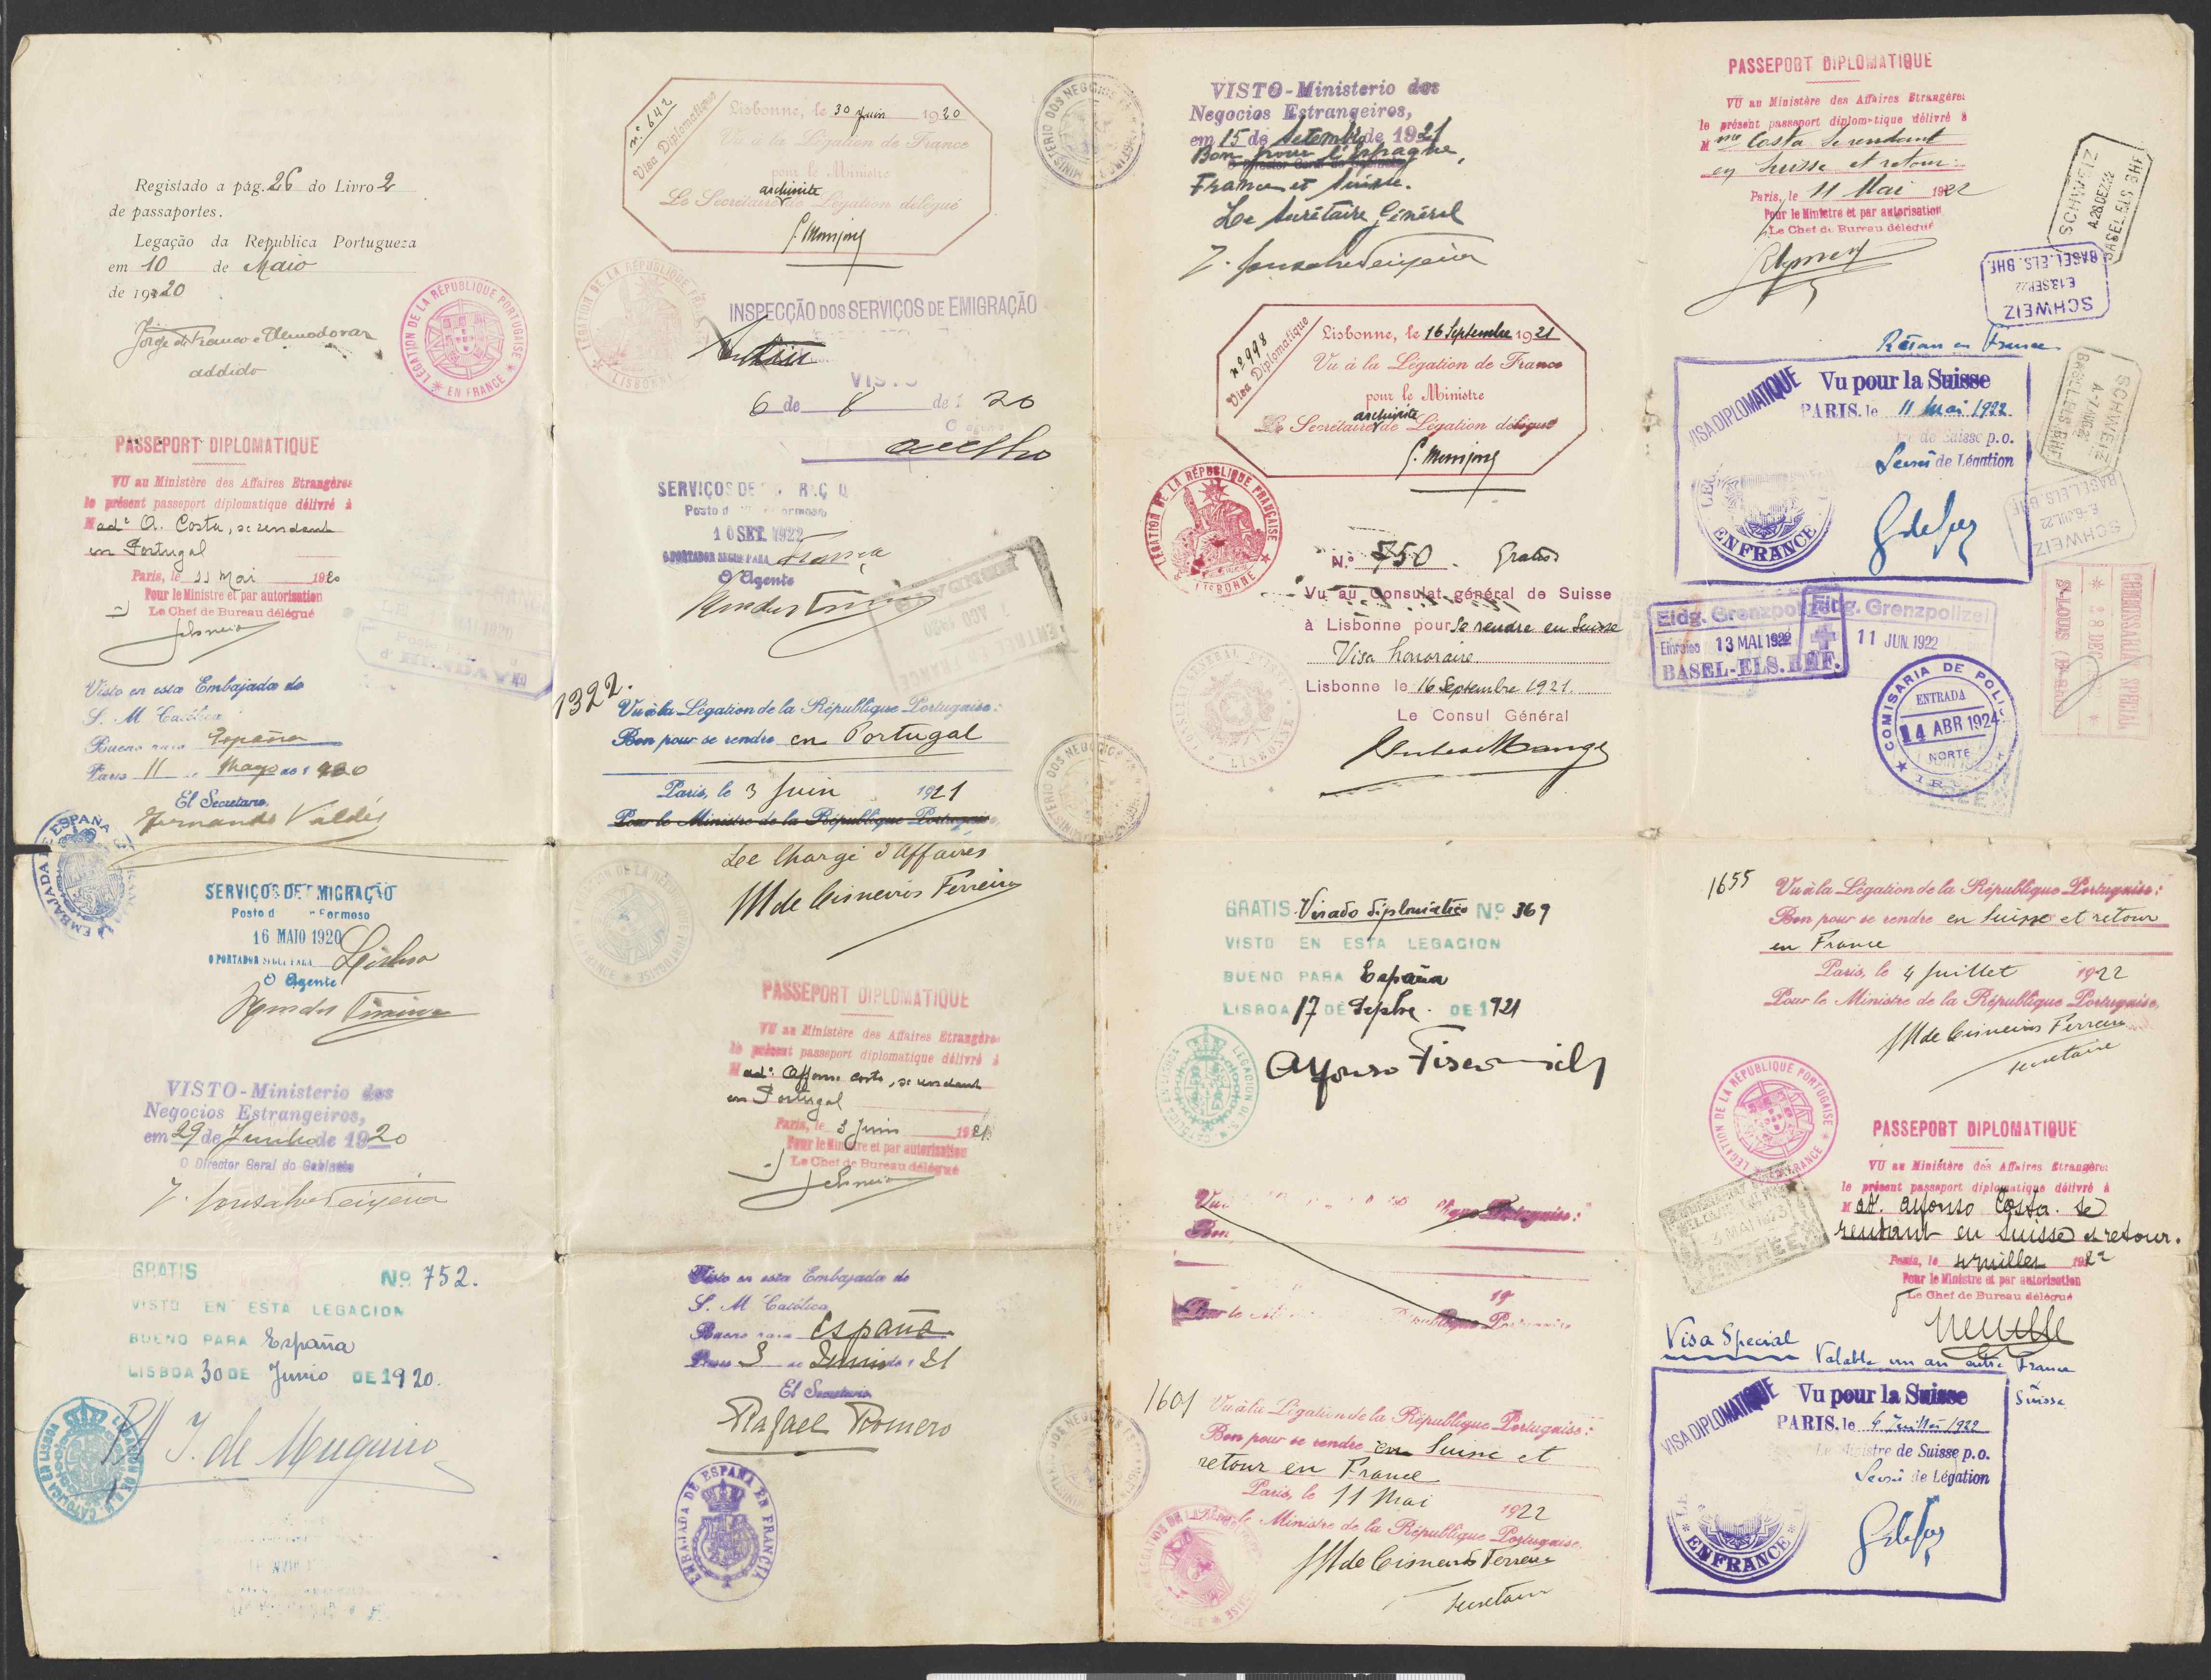 Registado a pág. 26 do Livro 2
de passaportes.
Legação da Republica Portugueza
em 10 de Maio
de 1920
Jorge de Franco e Almodovar
addido
LEGATION DE LA REPUBLIQUE PORTUGAISE
EN FRANCE
PASSEPORT DIPLOMATIQUE
VU au Ministère des Affaires Etrangères
le présent passeport diplomatique délivré à
Made A. Costa, se rendant
en Portugal
Paris, le 11 Mai 1920
Pour le Ministre et par autorisation
Le Chef de Bureau délégué
MAI 1920
HENDAYE
Visto en esta Embajada de
S. M. Católica
Bueno para España
Paris 11 de Mayo de 1920
El Secretario,
Fernando Valdés
EMBAJADA DE ESPAÑA
SERVIÇOS DE EMIGRAÇÃO
Posto d Formoso
16 MAIO 1920
O PORTADOR SEGUE PARA Lisboa
O Agente
VISTO-Ministerio dos
Negocios Estrangeiros,
em 29 de Junho de 1920
O Director Geral do Gabinete
J. Gonsalves Teixeira
GRATIS Nº 752.
VISTO EN ESTA LEGACION
BUENO PARA España
LISBOA 30 DE Junio DE 1920.
J. de Muguiro
n.º 642
Visa Diplomatique
Lisbonne, le 30 Juin 1920
Vu à la Légation de France
pour le Ministre
archiviste
Le Secrétaire de Légation délégué
LEGATION DE LA REPUBLIQUE FRANÇAISE
LISBONNE
INSPECÇÃO DOS SERVIÇOS DE EMIGRAÇÃO
VISTO
6 de 8 de 1920
Coelho
SERVIÇOS DE
Posto d Formoso
10 SET. 1922
O PORTADOR SEGUE PARA França
O Agente
HENDAYE
AGO 1920
1322.
Vu à la Légation de la République Portugaise:
Bon pour se rendre en Portugal
Paris, le 3 Juin 1921
Pour le Ministre de la République Portugaise,
Le Chargé d'Affaires
M de Cisneiros Ferreira
PASSEPORT DIPLOMATIQUE
VU au Ministère des Affaires Etrangères
le présent passeport diplomatique délivré à
Made Affonso Costa, se rendant
en Portugal
Paris, le 3 Juin 1921
Pour le Ministre et par autorisation
Le Chef de Bureau délégué
Visto en esta Embajada de
S. M. Católica
Bueno para España
Paris 3 de Junio de 1921
El Secretario
Rafael Romero
EMBAJADA DE ESPAÑA EN FRANCIA
MINISTERIO DOS NEGOCIOS ESTRANGEIROS
VISTO-Ministerio dos
Negocios Estrangeiros,
em 15 de Setembro de 1921
Bon pour l'Espagne,
France et Suisse.
Le Secrétaire Général
J. Gonsalves Teixeira
nº 998
Visa Diplomatique
Lisbonne, le 16 Septembre 1921
Vu à la Légation de France
pour le Ministre
archiviste
Le Secrétaire de Légation délégué
LEGATION DE LA REPUBLIQUE FRANÇAISE
LISBONNE
N.º 750. Gratis
Vu au Consulat général de Suisse
à Lisbonne pour se rendre en Suisse
Visa honoraire.
Lisbonne le 16 Septembre 1921.
Le Consul Général
GRATIS Visado diplomático Nº 369
VISTO EN ESTA LEGACION
BUENO PARA España
LISBOA 17 DE Sepbre. DE 1921
Alfonso
Vu
Bon
19
Pour le
1601
Vu à la Légation de la République Portugaise:
Bon pour se rendre en Suisse et
retour en France
Paris, le 11 Mai 1922
le Ministre de la République Portugaise,
M de Cisneiros Ferreira
secrétaire
PASSEPORT DIPLOMATIQUE
VU au Ministère des Affaires Etrangères
le présent passeport diplomatique délivré à
Mme Costa se rendant
en Suisse et retour
Paris, le 11 Mai 1922
Pour le Ministre et par autorisation
Le Chef de Bureau délégué
SCHWEIZ
A.28.DEZ.22
BASEL ELS. BHF.
SCHWEIZ
E.13.SEP.22
BASEL.ELS. BHF.
Retour en France
VISA DIPLOMATIQUE
Vu pour la Suisse
PARIS, le 11 Mai 1922
de Suisse p.o.
de Légation
EN FRANCE
SCHWEIZ
BASEL.ELS.BHF
SCHWEIZ
E.-6.JUL.22
BASEL.ELS BHF
Eidg. Grenzpolizei
Einreise 13 MAI 1922
BASEL-ELS. BHF.
Eidg. Grenzpolizei
11 JUN. 1922
COMMISSARIAT SPÉCIAL
28 DEC
ST-LOUIS
COMISARIA DE POLICIA
ENTRADA
14 ABR 1924
NORTE
IRUN
1655
Vu à la Légation de la République Portugaise:
Bon pour se rendre en Suisse et retour
en France
Paris, le 4 Juillet 1922
Pour le Ministre de la République Portugaise,
M de Cisneiros Ferreira
secrétaire
LEGATION DE LA REPUBLIQUE PORTUGAISE
EN FRANCE
PASSEPORT DIPLOMATIQUE
VU au Ministère des Affaires Etrangères
le présent passeport diplomatique délivré à
Made Alfonso Costa. se
rendant en Suisse et retour.
Paris, le 4 Juillet 1922
Pour le Ministre et par autorisation
Le Chef de Bureau délégué
MAI 1923
ENTRÉE
Visa Special
Valable un an entre France
Suisse
VISA DIPLOMATIQUE
Vu pour la Suisse
PARIS, le 4 Juillet 1922
Le Ministre de Suisse p.o.
de Légation
EN FRANCE